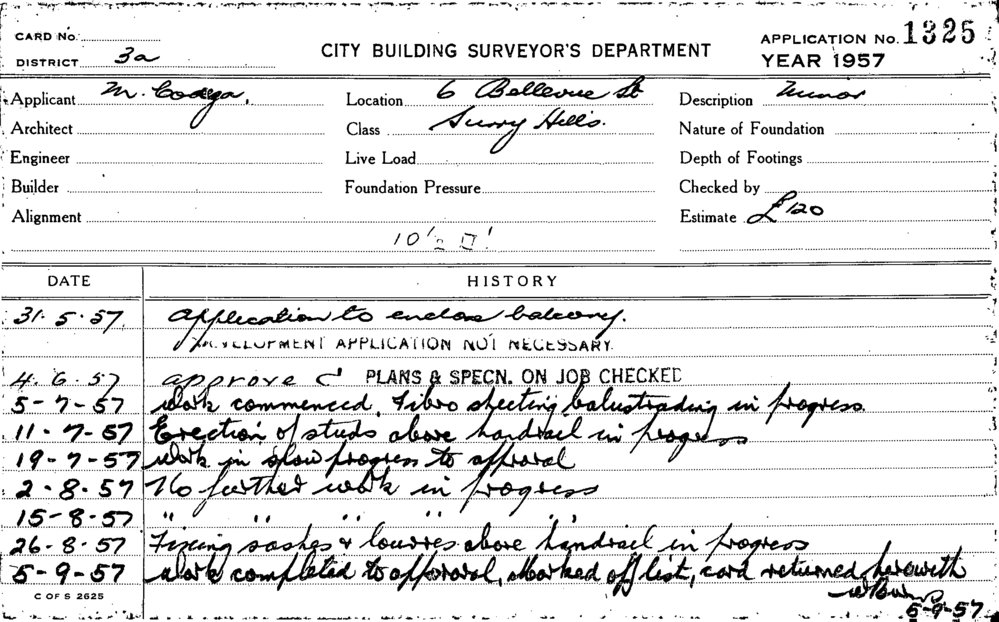 CARD No.
DISTRICT 3a
CITY BUILDING SURVEYOR'S DEPARTMENT
APPLICATION No. 1325
YEAR 1957
Applicant M. Codega. Location 6 Bellevue St Description Minor
Architect Class Surry Hills. Nature of Foundation
Engineer Live Load Depth of Footings
Builder Foundation Pressure Checked by
Alignment Estimate £120
10'½ □'
DATE HISTORY
31.5.57. Application to enclose balcony.
DEVELOPMENT APPLICATION NOT NECESSARY.
4.6.57 approve PLANS & SPECN. ON JOB CHECKED
5-7-57 Work commenced. Fibro sheeting balustrading in progress.
11-7-57 Erection of studs above handrail in progress
19-7-57 Work in slow progress to approval
2-8-57 No further work in progress
15-8-57 " " " " "
26-8-57 Fixing sashes & louvres above handrail in progress
5-9-57 Work completed to approval, Marked off list, card returned herewith
5-9-57
C OF S 2625